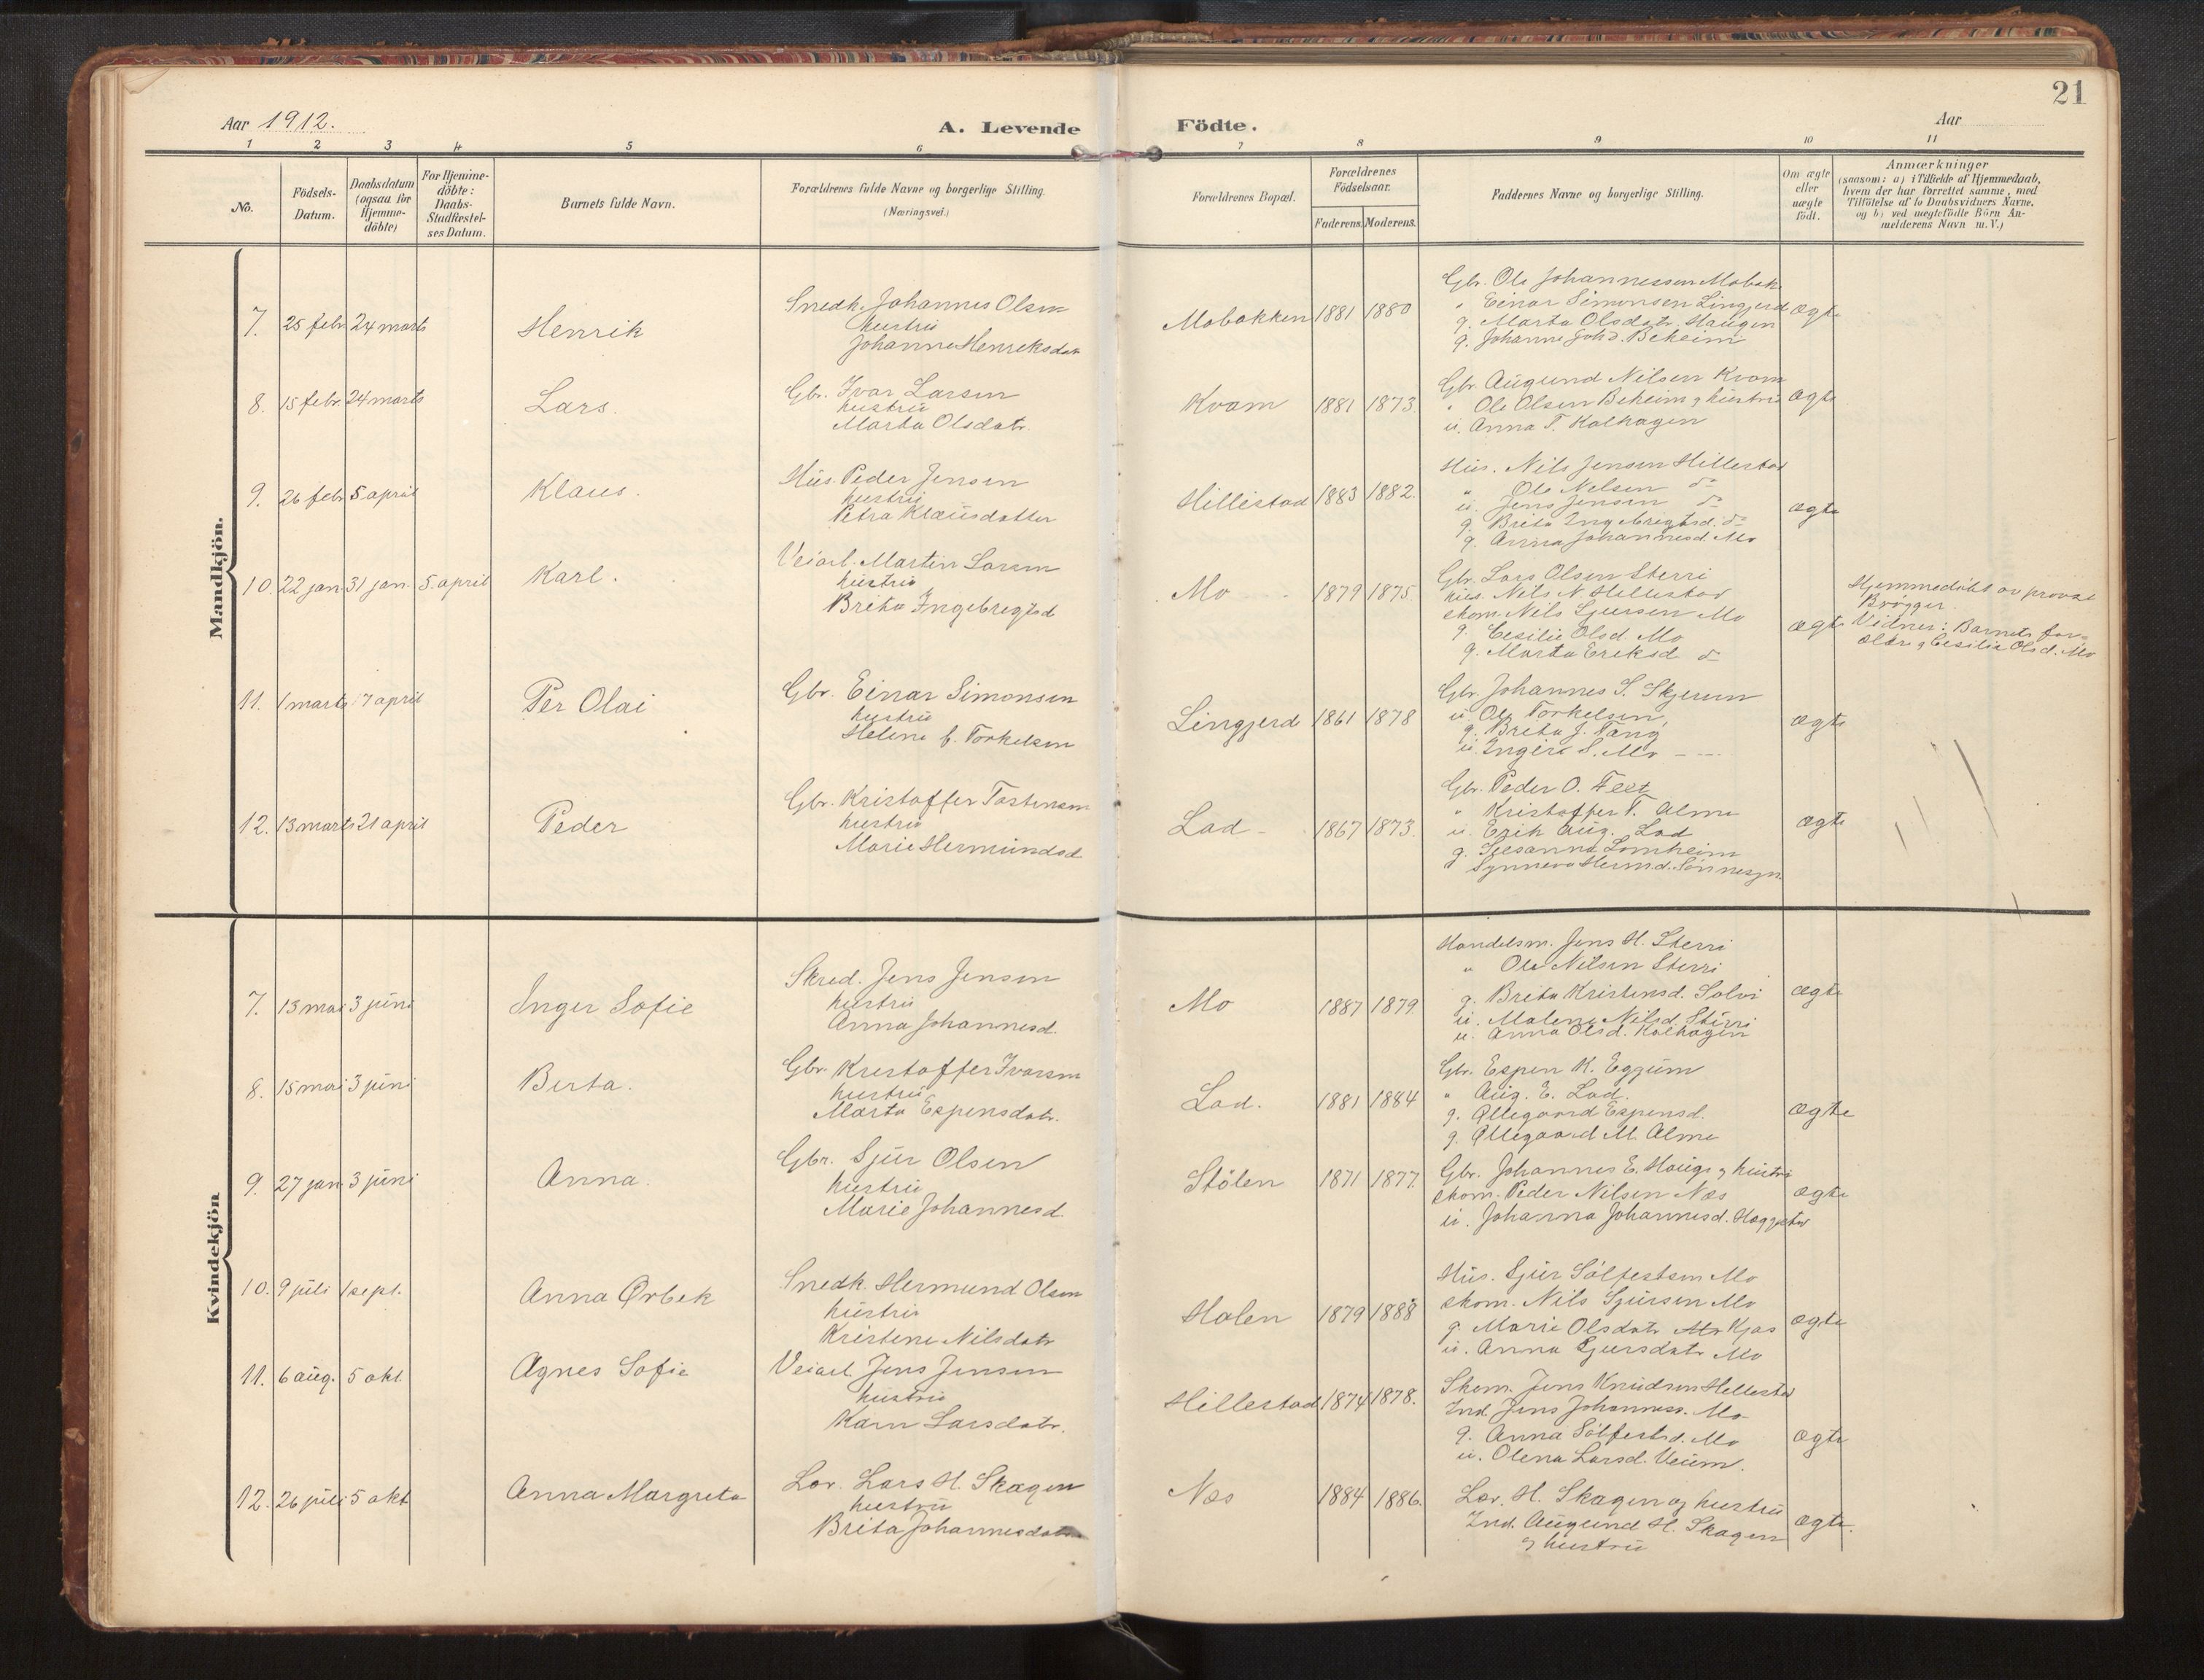 21
Aar 1912.
A. Levende Födte.
Aar
1 2 3 4 5 6 7 8 9 10 11
No.
Födsels-
Datum.
Daabsdatum
(ogsaa for
Hjemme-
döbte)
For Hjemme-
döbte:
Daabs-
Stadfæstel-
ses Datum.
Barnets fulde Navn.
Forældrenes fulde Navne og borgerlige Stilling.
(Næringsvei.)
Forældrenes Bopæl.
Forældrenes
Födselsaar.
Faderens. Moderens.
Faddernes Navne og borgerlige Stilling.
Om ægte
eller
uægte
födt.
Anmærkninger
(saasom: a) i Tilfælde af Hjemmedaab,
hvem der har forrettet samme, med
Tilföielse af to Daabsvidners Navne,
og b) ved uægtefödte Börn An-
melderens Navn m.V.)
Mandkjön.
7. 25 febr 24 marts
Henrik
Snedk. Johannes Olsen
hustru
Johanne Henriksdatr
Mobakken 1881 1880
Gbr. Ole Johannessen Mobak
" Einar Simonsen Lingjerd
g. Marta Olsdatr. Haugen
g. Johanne Joh.d. Beheim
ægte
8. 15 febr. 24 marts
Lars.
Gbr. Ivar Larsen
hustru
Marta Olsdatr.
Kvam 1881 1873.
Gbr. Augund Nilsen Kvam
" Ole Olsen Beheim og hustru
u. Anna T. Kalhagen
ægte
9. 26 febr 5 april
Klaus.
Hus. Peder Jensen
hustru
Petra Klausdatter
Hillestad 1883 1882.
Hus. Nils Jensen Hillestad
" Ole Nelsen do
u. Jens Jensen do
g. Brita Ingebrigtsd. do
g. Anna Johannesd. Mo
ægte
10. 22 jan. 31 jan. 5. april
Karl.
Veiarb. Martin Larsen
hustru
Brita Ingebregtsd
Mo 1879 1875
Gbr. Lars Olsen Sterri
hus. Nels N. Hillestad
skom. Nils Sjursen Mo
g. Cesilie Olsd. Mo
g. Marta Eriksd do
ægte
Hjemmedöbt av provst
Brøgger.
Vidner: Barnets for-
ældre og Cesilia Olsd. Mo
11. 1 marts 17 april
Per Olai
Gbr. Einar Simonsen
hustru
Helene f. Torkelsen
Lingjerd 1861 1878
Gbr. Johannes S. Skjerum
u. Ole Torkelsen,
g. Brita J. Tang
u. Ingeri S. Mo
ægte
12. 13 marts 21 april
Peder
Gbr. Kristoffer Tostensen
hustru
Marie Hermundsd
Lad 1867 1873.
Gbr. Peder O. Feet
" Kristoffer T. Alme
u. Erik Aug. Lad
g. Susanna Lomheim
Synneva Herm.d. Sønnesyn
ægte
Kvindekjön
7. 13 mai 3 juni
Inger Sofie
Skred. Jens Jensen
hustru
Anna Johannesd.
Mo 1887 1879.
Handelsm. Jens H. Sterri
" Ole Nilsen Sterri
g. Brita Kristensd. Solvi
u. Malene Nilsd. Sterri
u. Anna Olsd. Kalhagen
ægte
8. 15 mai 3 juni
Berta.
Gbr. Kristoffer Ivarsen
hustru
Marta Espensdatr.
Lad. 1881 1884
Gbr. Espen K. Eggum
" Aug. E. Lad.
g. Allegaard Espensd.
g. Allegaard M. Alme
ægte
9. 27 jan 3 juni
Anna.
Gbr. Sjur Olsen
hustru
Marie Johannesd.
Stölen 1871 1877.
Gbr. Johannes E. Hauge og hustru
skom. Peder Nilsen Næs
u. Johanna Johannesd. Hæggestad
ægte
10. 9 juli 1 sept.
Anna Ørbek
Snedk. Hermund Olsen
hustru
Kristine Nilsdatr
Halen 1879 1888
Hus. Sjur Sölfestsen Mo
skom. Nils Sjursen Mo
g. Marie Olsdatr Mo Kjos
u. Anna Sjursdatr Mo
ægte
11. 6 aug. 5 okt.
Agnes Sofie
Veiarb. Jens Jensen
hustru
Karn Larsdatr.
Hillestad 1874 1878.
Skom. Jens Knudsen Hellestad
Ind. Jens Johanness. Mo
g. Anna Sölfestsd. Mo
u. Olena Larsd. Veium.
ægte
12. 26 juli 5 okt
Anna Margreta
Lær. Lars H. Skagen
hustru
Brita Johannesdatr
Næs 1884 1886.
Lær. H. Skagen og hustru
Ind. Augund H. Skagen
og hustru
ægte.